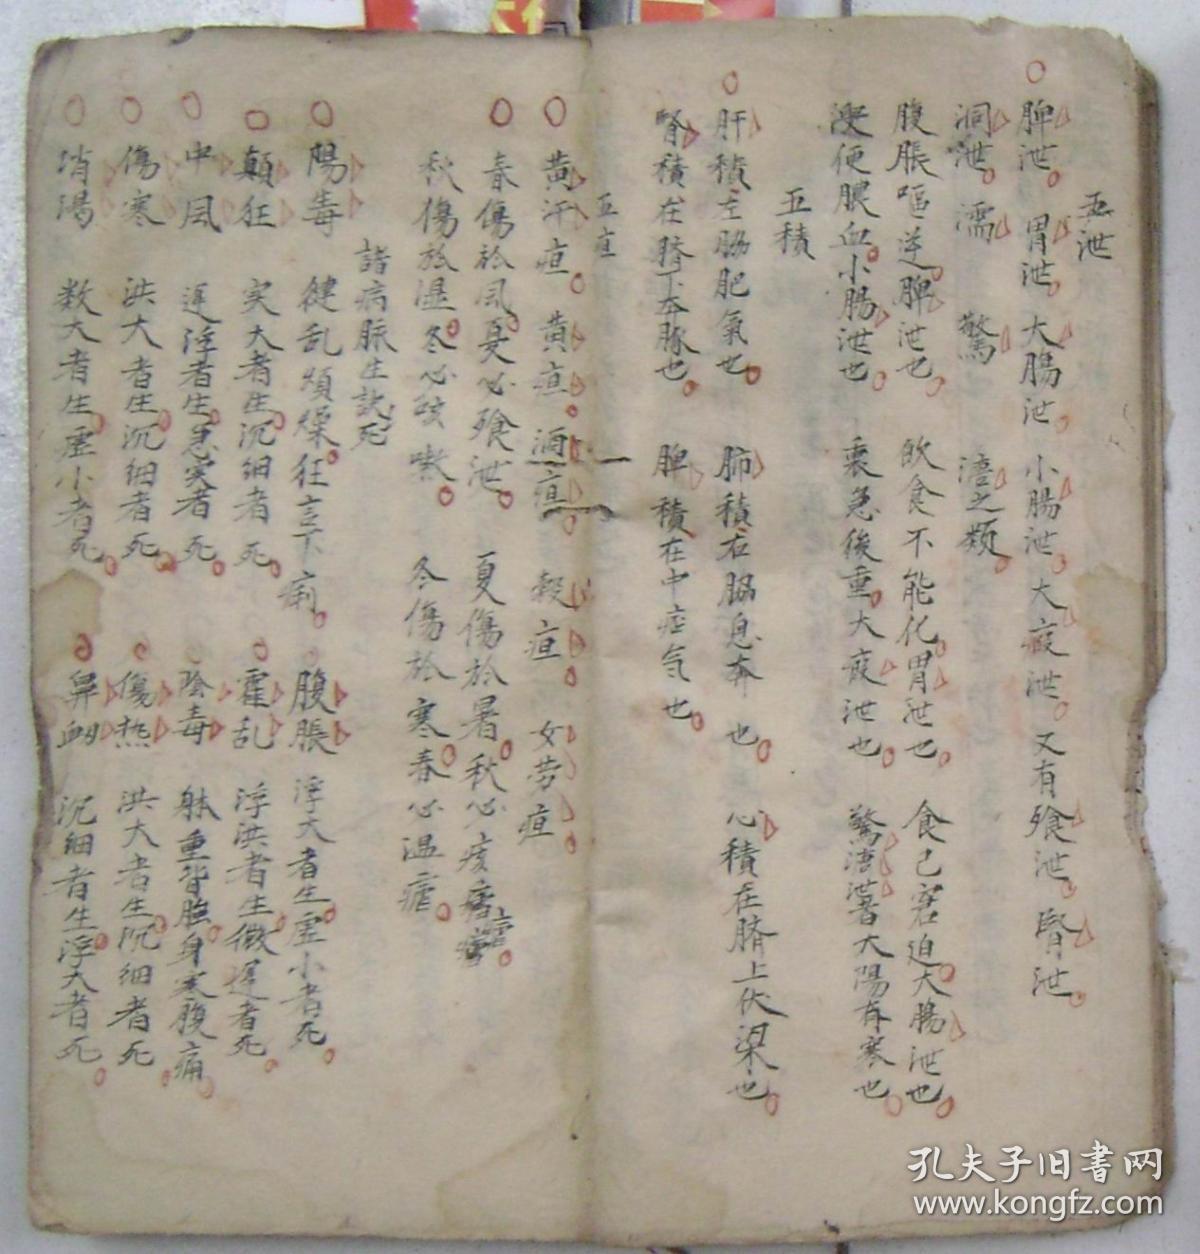 五泄
脾泄 胃泄 大腸泄 小腸泄 大瘕泄 又有飧泄 腎泄
洞泄 濡 鶩 溏之類
腹脹嘔逆脾泄也 飲食不能化胃泄也 食已窘迫大腸泄也
溲便膿血小腸泄也 裏急後重大瘕泄也 鶩溏泄著大陽有寒也
五積
肝積左脇肥氣也 肺積右脇息奔也 心積在臍上伏梁也
腎積在臍下奔豚也 脾積在中症气也
五疸
黃汗疸 黃疸 酒疸 穀疸 女劳疸
春傷於風夏必飧泄 夏傷於暑秋必痎瘧
秋傷於湿冬必咳嗽 冬傷於寒春必温瘧
諸病脈生訣死
陽毒 健乱煩燥狂言下痢 腹脹 浮大者生虛小者死
顛狂 实大者生沉細者死 霍乱 浮洪者生微遲者死
中風 遲浮者生急实者死 陰毒 躰重背身寒腹痛
傷寒 洪大者生沉細者死 傷热 洪大者生沉細者死
消渴 数大者生虛小者死 鼻衂 沉細者生浮大者死
孔夫子旧书网
www.kongfz.com